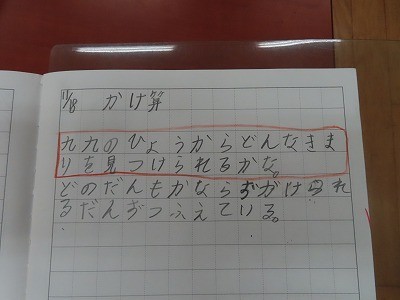 11/18 かけ算
九九のひょうからどんなきま
りを見つけられるかな。
どのだんもかならずがけられ
るだんずつふえている。